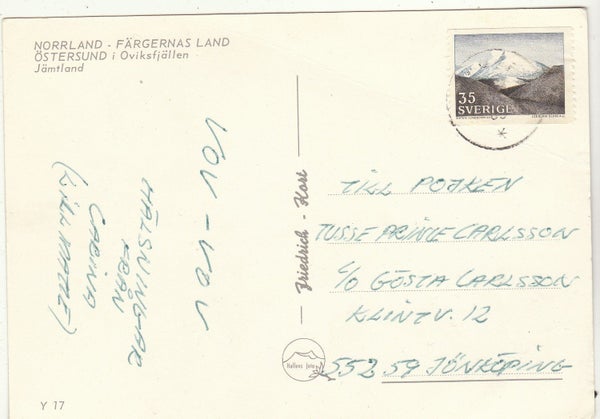 NORRLAND - FÄRGERNAS LAND
ÖSTERSUND i Oviksfjällen
Jämtland
VOV - VOV
HÄLSNINGAR
FRÅN
CARINA
Y 17
Friedrich - Kort
Hallens foto
35
SVERIGE
TILL POJKEN
TUSSE PRINCE CARLSSON
C/O GÖSTA CARLSSON
KLINTV. 12
552 59 JÖNKÖPING